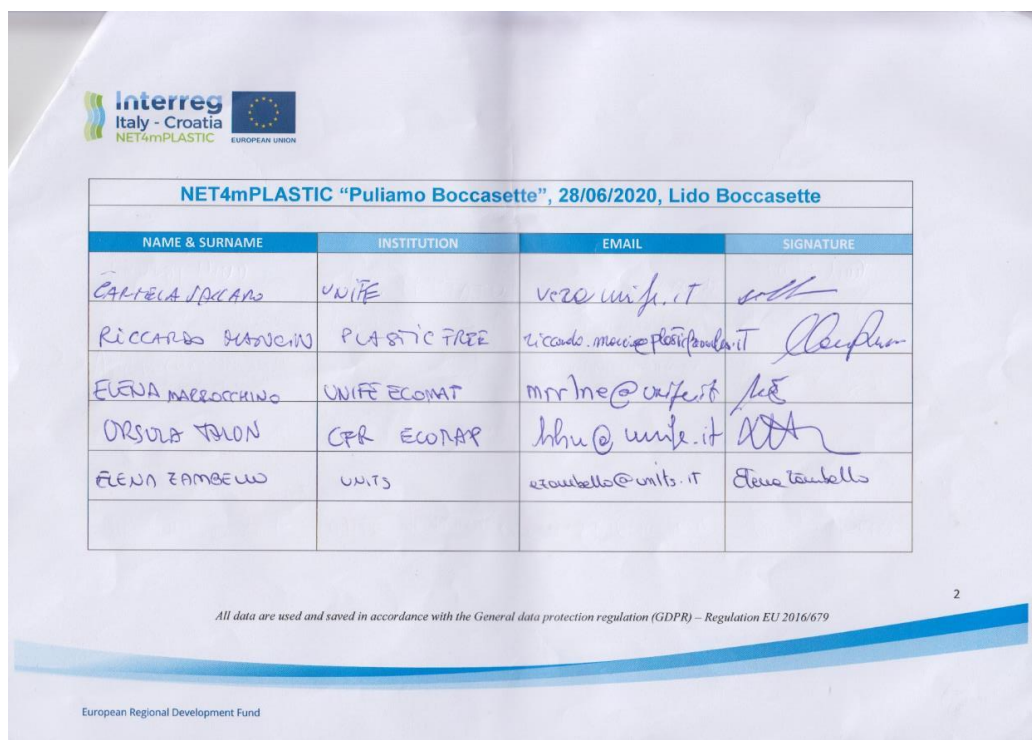 Interreg
Italy - Croatia
NET4mPLASTIC
EUROPEAN UNION
NET4mPLASTIC “Puliamo Boccasette”, 28/06/2020, Lido Boccasette
NAME & SURNAME INSTITUTION EMAIL SIGNATURE
CARMELA UNIFE unife.it
RICCARDO MANCIN PLASTIC FREE
ELENA MARROCCHINO UNIFE ECOMAT mrrlne@unife.it
URSULA TALON CFR hhu@unife.it
ELENA ZAMBELLO UNITS ezambello@units.it Elena Zambello
2
All data are used and saved in accordance with the General data protection regulation (GDPR) – Regulation EU 2016/679
European Regional Development Fund